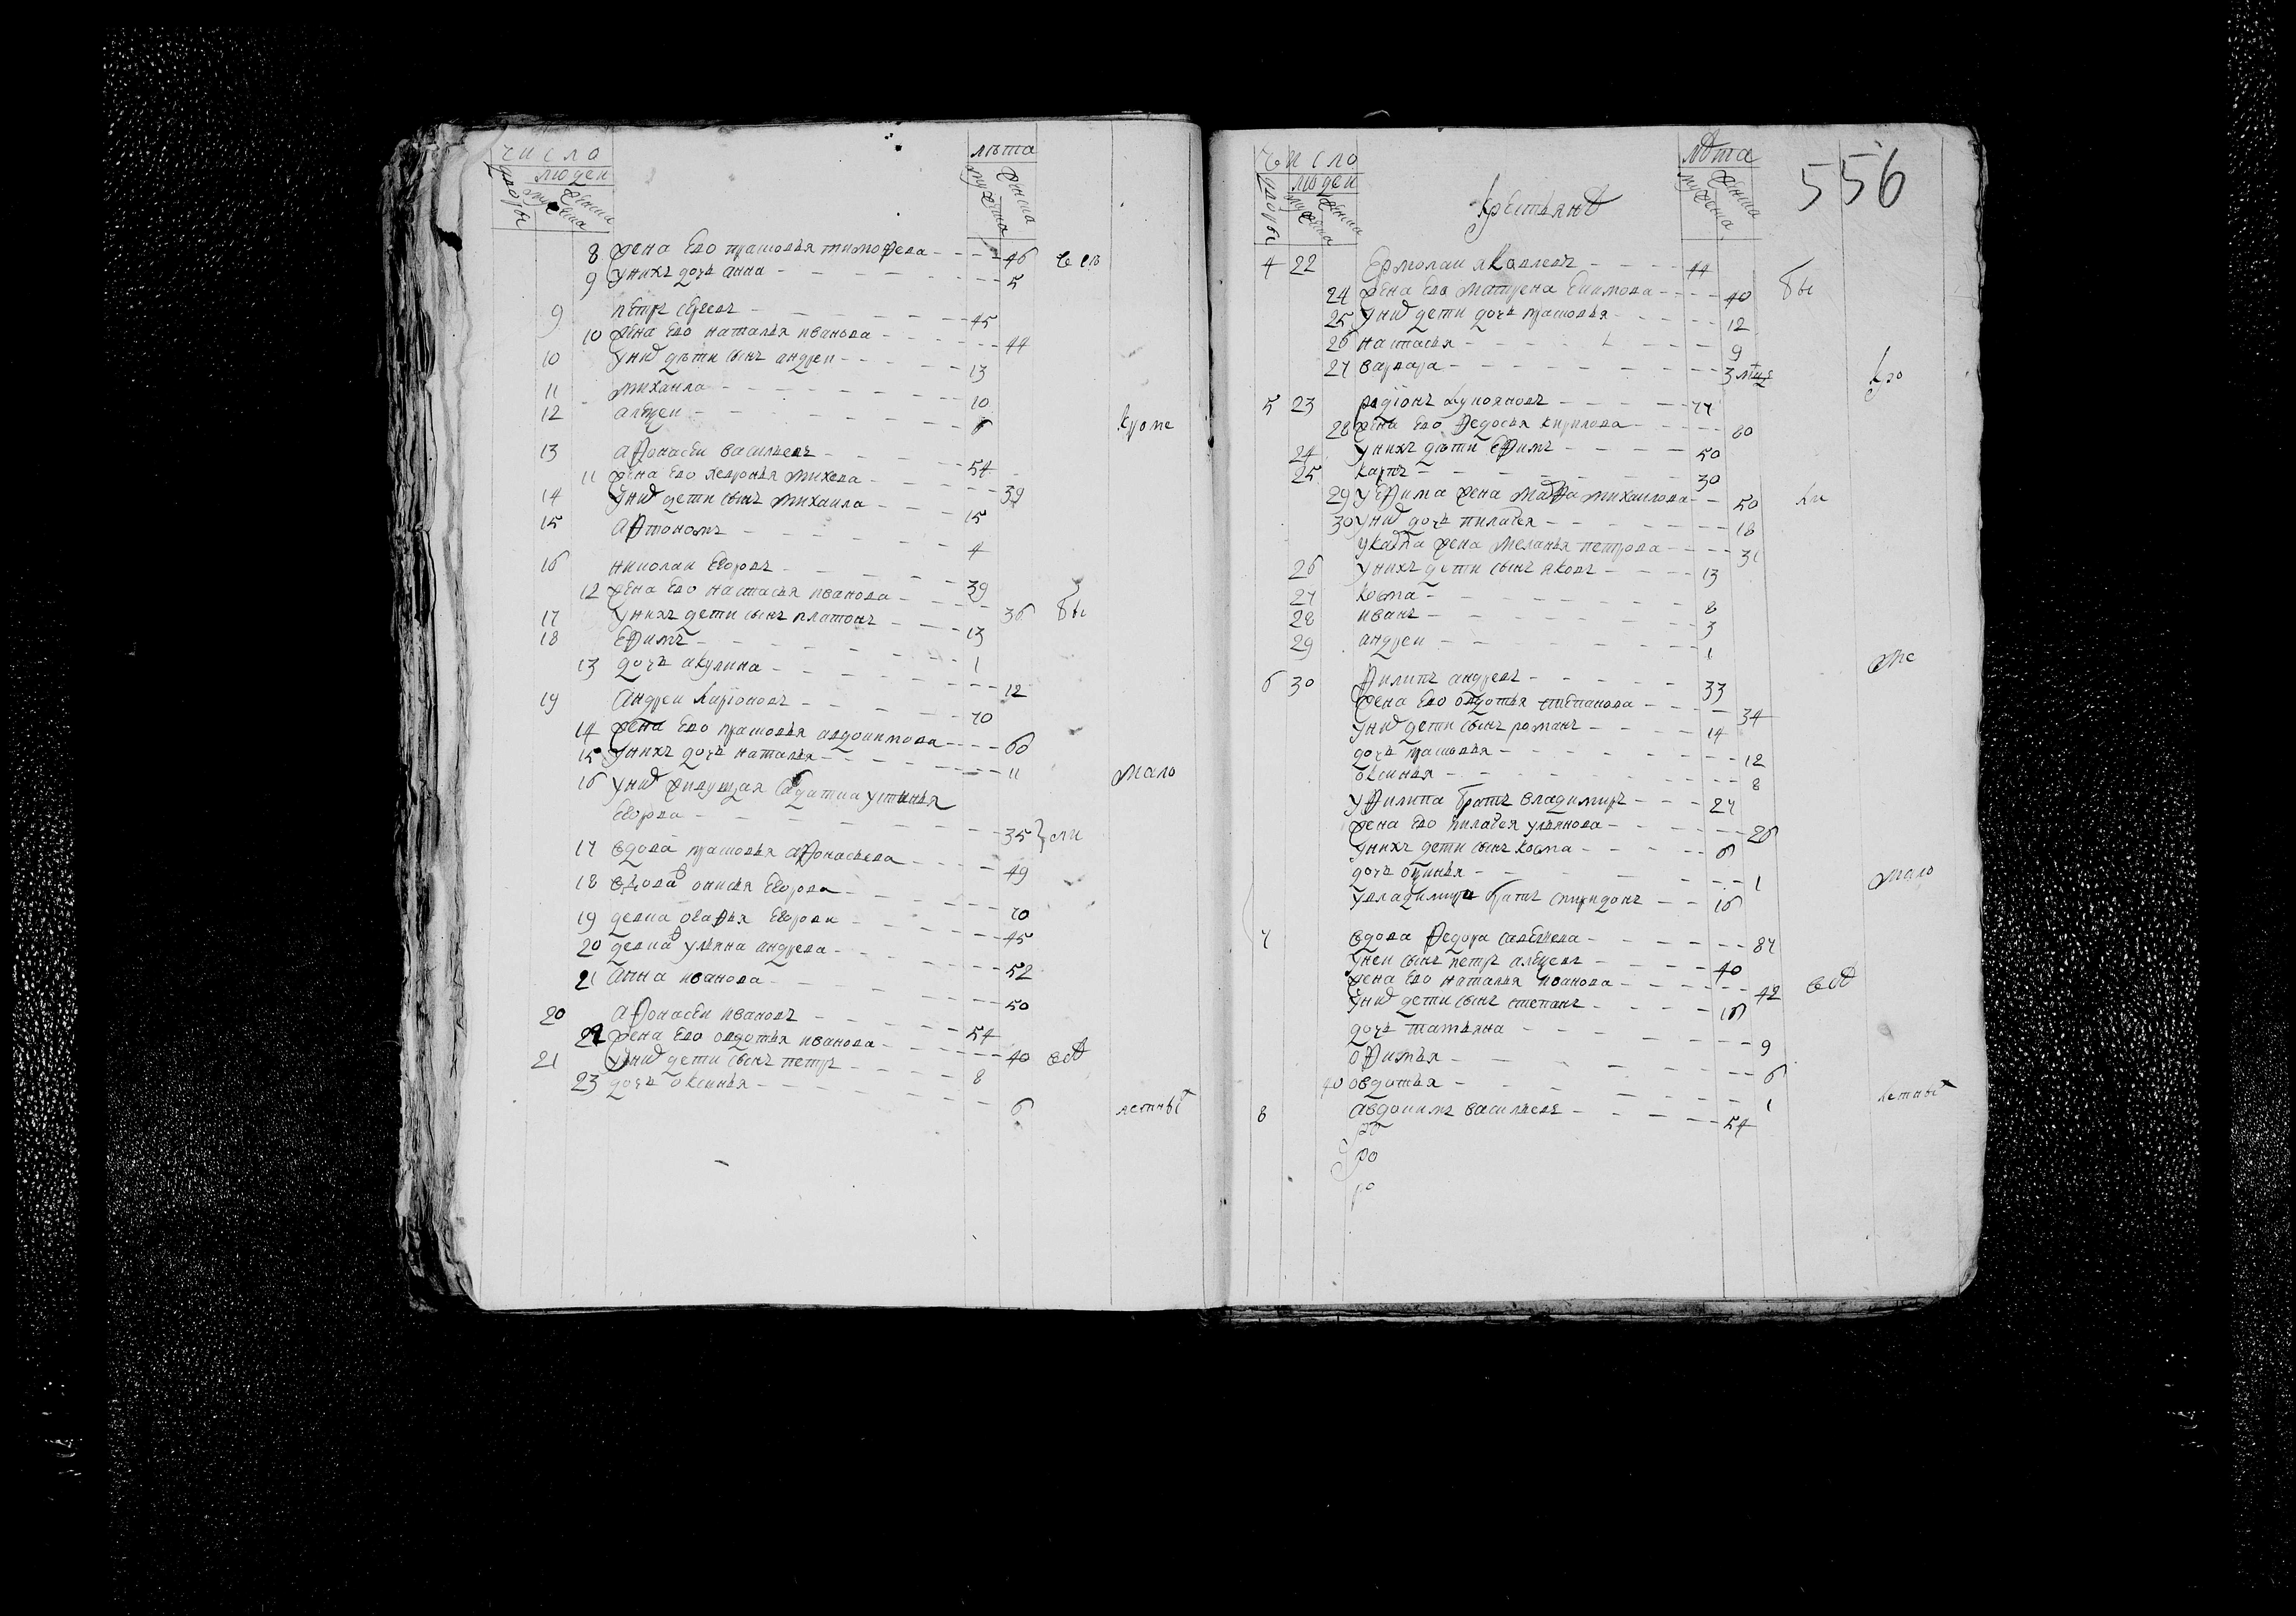 число
людеи
дворы
мужеска
женска
лѣта
мужеска
женска
8 жена ево прасковья тимофеева 46 всѣ
9 у нихъ дочь анна 5
9 петръ сергеевъ 45
10 жена ево наталья иванова 44
10 у них дѣти сынъ андреи 13
11 михаила 10
12 алѣксеи 6 кроме
13 афонасеи васильевъ 54
11 жена ево хевронья михеева 39
14 у них дети сынъ михаила 15
15 афтономъ 4
16 николаи егоровъ 39
12 жена ево настасья иванова 36 бы
17 у нихъ дети сынъ платонъ 13
18 ефимъ 1
13 дочь акулина 12
19 андреи ларионовъ 70
14 жена ево прасковья авдокимова 60
15 у нихъ дочь наталья 11
16 у них живущая салдатка устинья мало
егорова 35 ли
17 вдова прасковья афонасьева 49
18 вдова анисья егорова 70
19 девка агафья егорова 45
20 девка ульяна андреева 52
21 анна иванова 50
20 афонасеи ивановъ 54
22 жена ево овдотья иванова 40 всѣ
21 у них дети сынъ петръ 8
23 дочь оксинья 6 летных
число
людеи
дворы
мужеска
женска
крестьянѣ
лѣта
мужеска
женска
556
4 22 ермолаи яковлевъ 44
24 жена ево матрена екимова 40 бы
25 у них дети дочь прасковья 12
26 настасья 9
27 варвара 3 мца кро
5 23 родионъ лукояновъ 77
28 жена ево федосья кирилова 80
24 у нихъ дѣти ефимъ 50
25 карпъ 30
29 у ефима жена марфа михаилова 50 ли
30 у них дочь пилагея 18
у карпа жена меланья петрова 31
26 у нихъ дети сынъ яковъ 13
27 косма 8
28 иванъ 3
29 андреи 1
ме
6 30 филипъ андреевъ 33
жена ево овдотья степанова 34
у них дети сынъ романъ 14
дочь прасковья 12
оксинья 8
у филипа братъ владимиръ 27
жена ево пилагея ульянова 26
у нихъ дети сынъ косма 6
дочь оксинья 1 мало
у владимира братъ спиридонъ 16
7 вдова федора савельева 87
у неи сынъ петръ алѣксеевъ 40
жена ево наталья иванова 42 всѣ
у них дети сынъ степанъ 16
дочь татьяна 9
офимья 6
40 овдотья 1 летных
8 авдокимъ васильевъ 54
ро
ро
ро